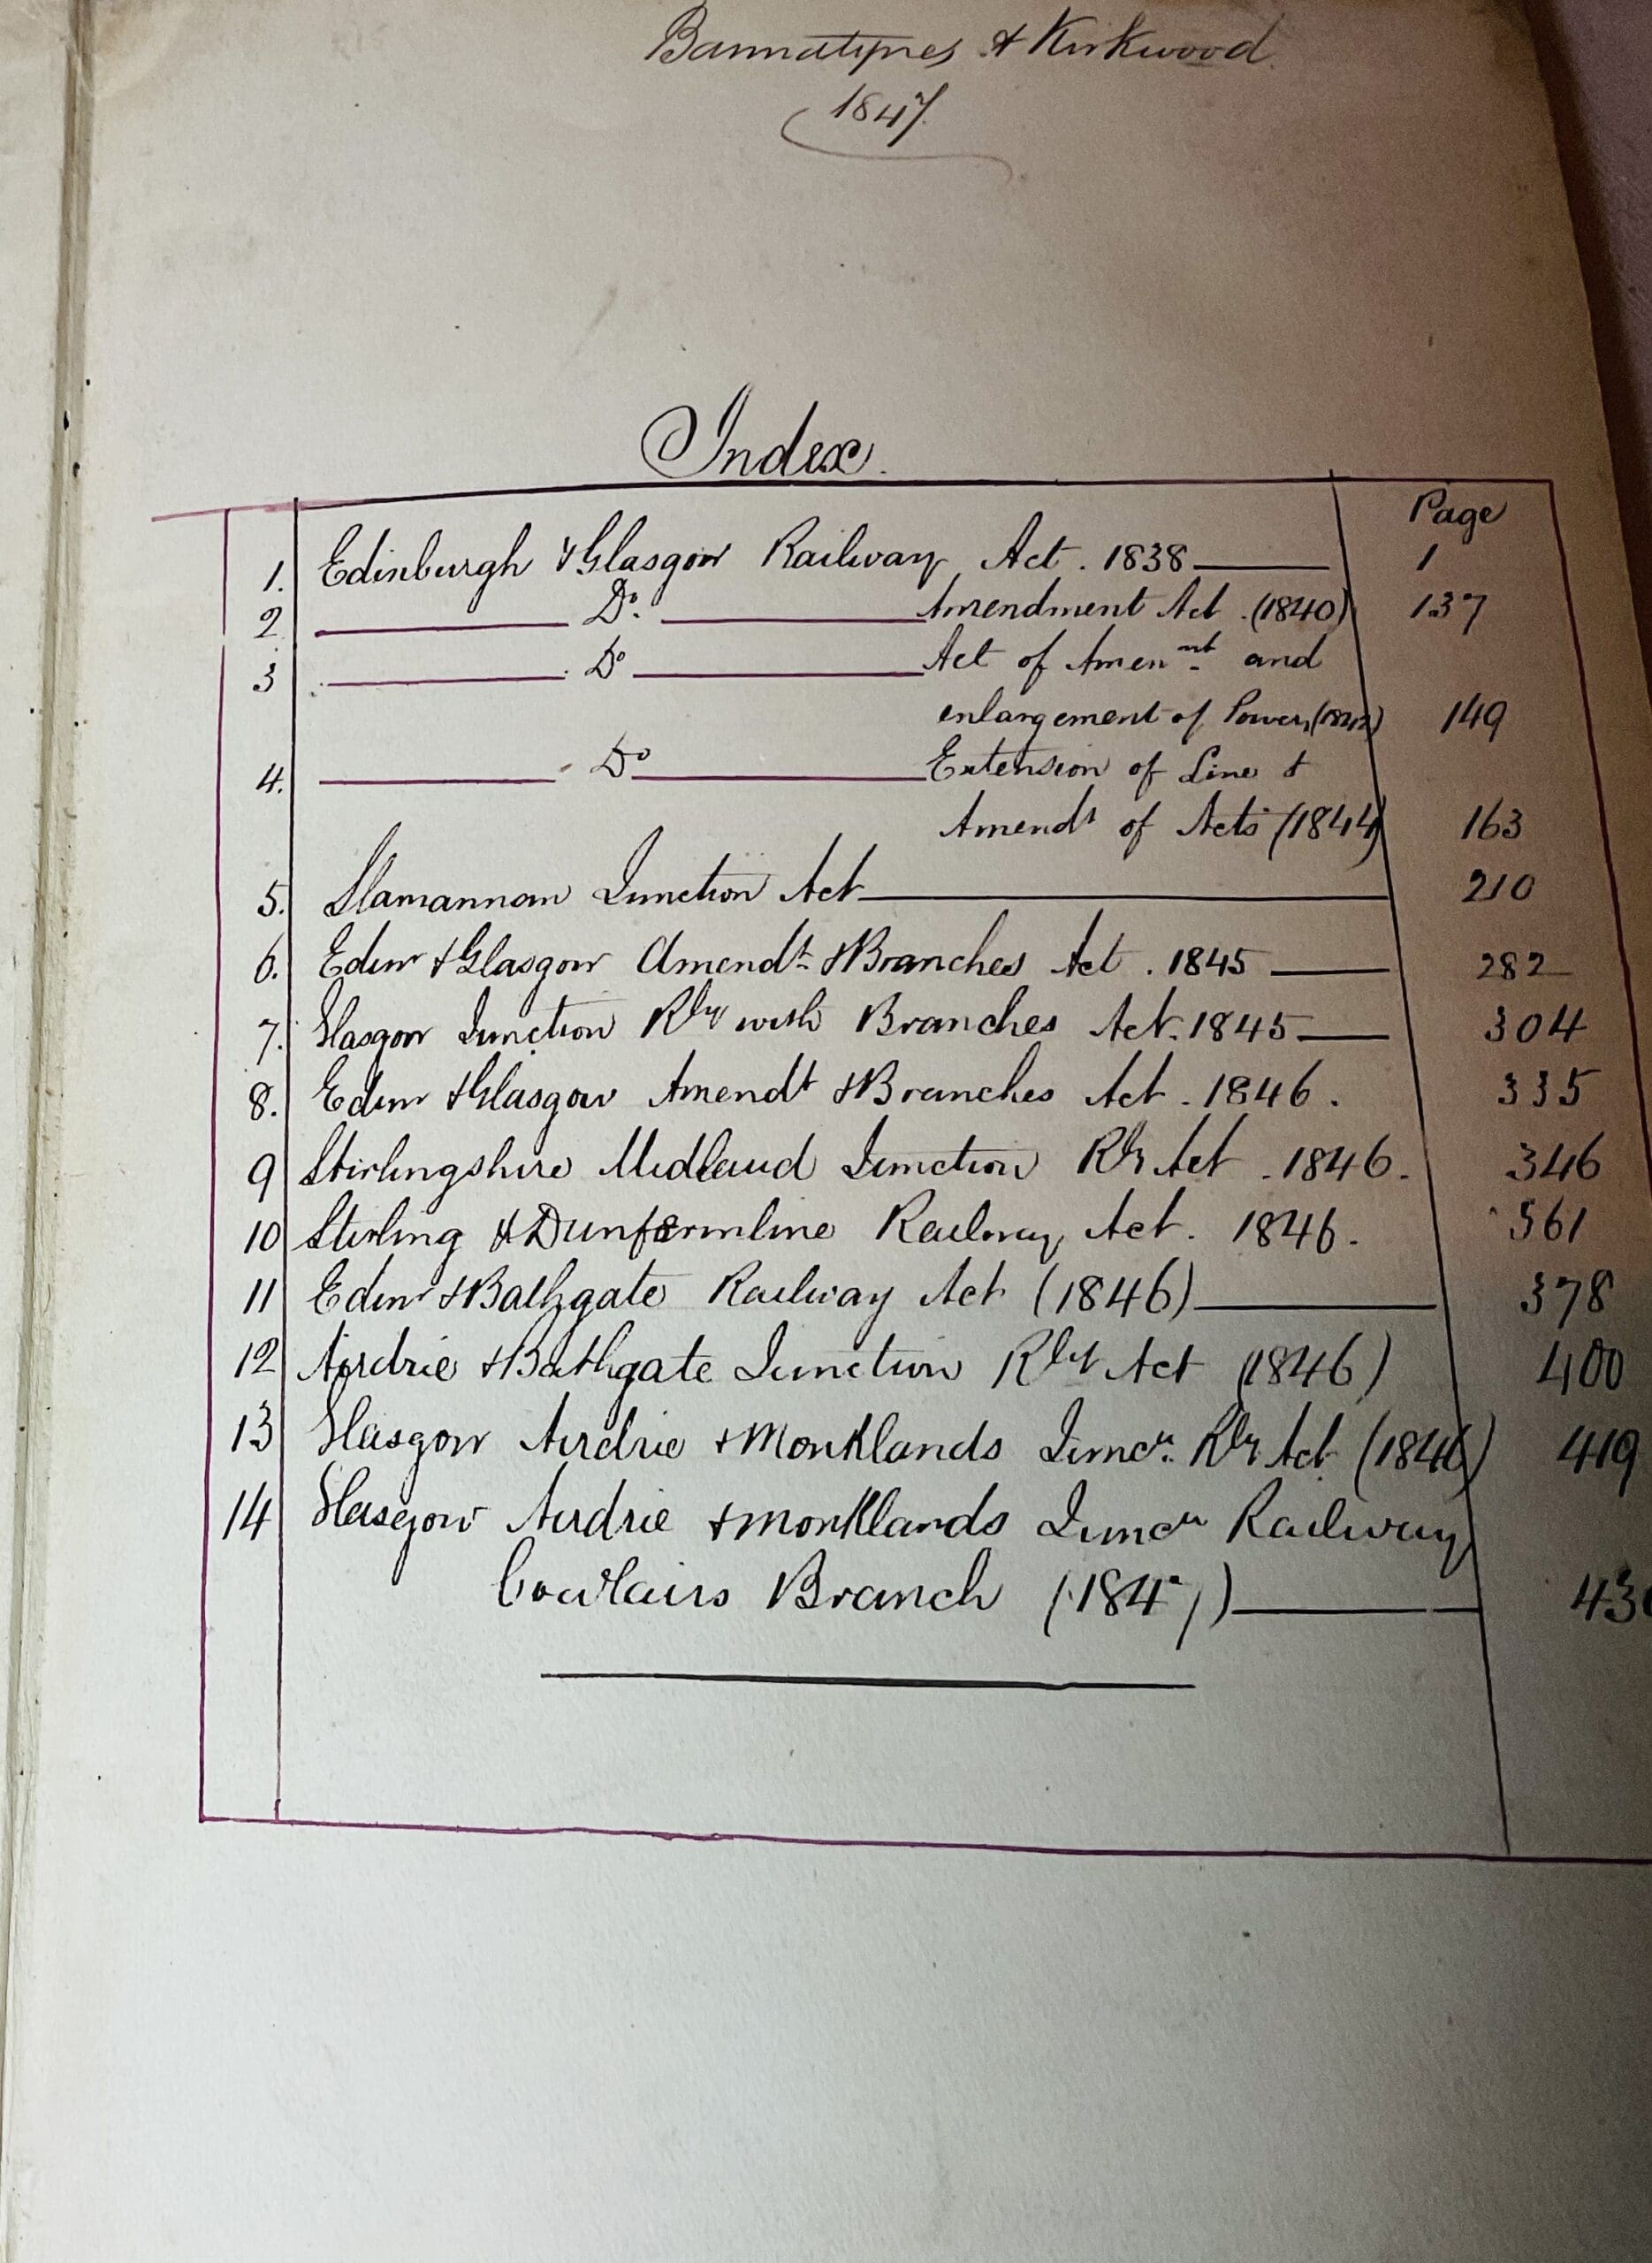 Bannatynes & Kirkwood.
1847.
Index.
Page
1. Edinburgh & Glasgow Railway Act. 1838 1
2 Do. Amendment Act. (1840) 137
3 Do Act of Amennt. and
enlargement of Powers (1842) 149
4. Do Extension of Line &
Amendt of Acts (1844) 163
5. Slamannan Junction Act 210
6. Edinr & Glasgow Amendt. & Branches Act. 1845 282
7. Glasgow Junction Rly with Branches Act. 1845 304
8. Edinr & Glasgow Amendt & Branches Act. 1846. 335
9 Stirlingshire Midland Junction Rly Act. 1846. 346
10 Stirling & Dunfermline Railway Act. 1846. 361
11 Edinr & Bathgate Railway Act (1846) 378
12 Airdrie & Bathgate Junction Rly Act (1846) 400
13 Glasgow Airdrie & Monklands Juncn. Rly Act (1846) 419
14 Glasgow Airdrie & Monklands Juncn Railway
Cowlairs Branch (1847) 43